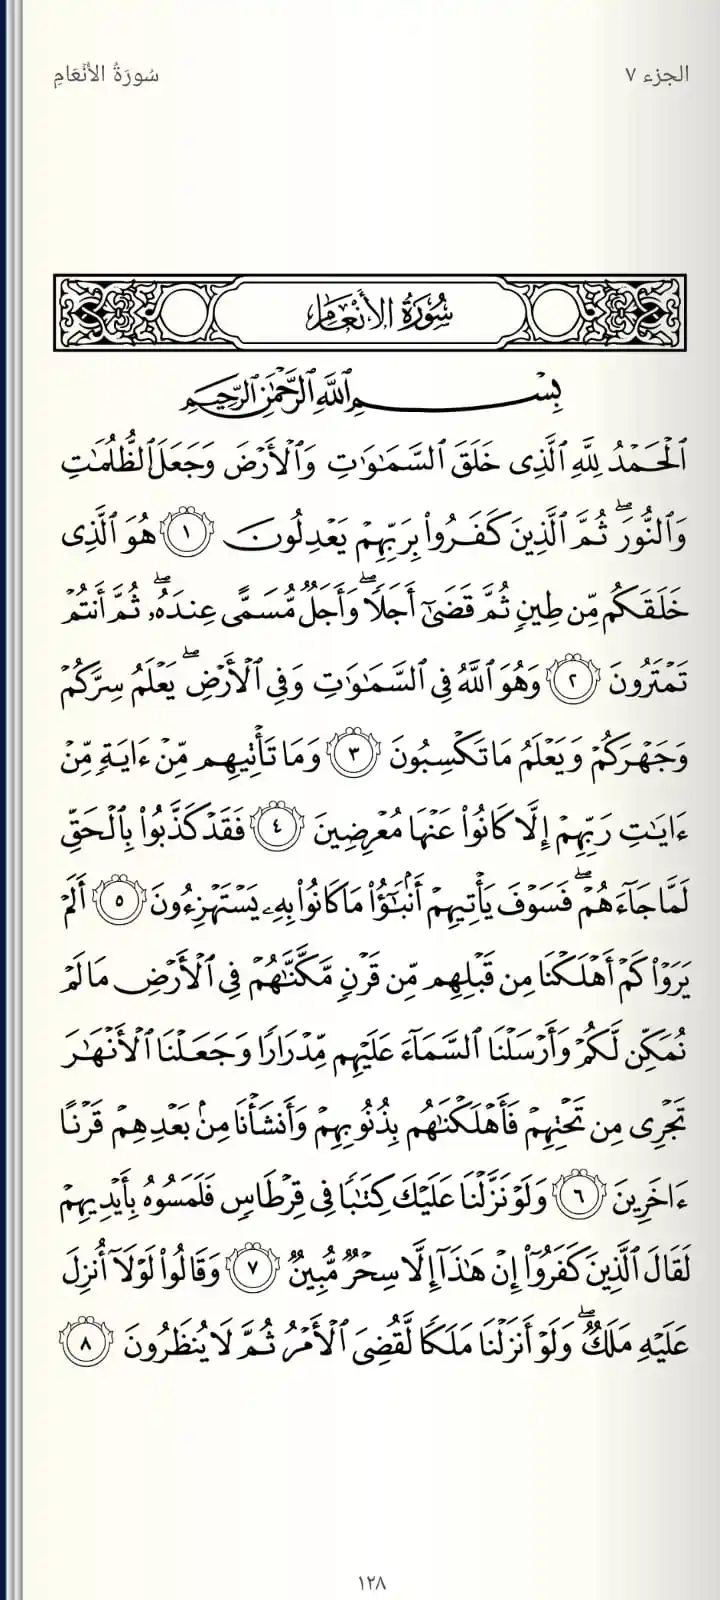 الجزء ٧
سُورَةُ الأَنْعَامِ
سُورَةُ الأَنْعَامِ
بِسْمِ ٱللَّهِ ٱلرَّحْمَٰنِ ٱلرَّحِيمِ
ٱلْحَمْدُ لِلَّهِ ٱلَّذِى خَلَقَ ٱلسَّمَٰوَٰتِ وَٱلْأَرْضَ وَجَعَلَ ٱلظُّلُمَٰتِ
وَٱلنُّورَ ۖ ثُمَّ ٱلَّذِينَ كَفَرُوا۟ بِرَبِّهِمْ يَعْدِلُونَ ١ هُوَ ٱلَّذِى
خَلَقَكُم مِّن طِينٍ ثُمَّ قَضَىٰٓ أَجَلًا ۖ وَأَجَلٌ مُّسَمًّى عِندَهُۥ ۖ ثُمَّ أَنتُمْ
تَمْتَرُونَ ٢ وَهُوَ ٱللَّهُ فِى ٱلسَّمَٰوَٰتِ وَفِى ٱلْأَرْضِ ۖ يَعْلَمُ سِرَّكُمْ
وَجَهْرَكُمْ وَيَعْلَمُ مَا تَكْسِبُونَ ٣ وَمَا تَأْتِيهِم مِّنْ ءَايَةٍ مِّنْ
ءَايَٰتِ رَبِّهِمْ إِلَّا كَانُوا۟ عَنْهَا مُعْرِضِينَ ٤ فَقَدْ كَذَّبُوا۟ بِٱلْحَقِّ
لَمَّا جَآءَهُمْ ۖ فَسَوْفَ يَأْتِيهِمْ أَنۢبَٰٓؤُا۟ مَا كَانُوا۟ بِهِۦ يَسْتَهْزِءُونَ ٥ أَلَمْ
يَرَوْا۟ كَمْ أَهْلَكْنَا مِن قَبْلِهِم مِّن قَرْنٍ مَّكَّنَّٰهُمْ فِى ٱلْأَرْضِ مَا لَمْ
نُمَكِّن لَّكُمْ وَأَرْسَلْنَا ٱلسَّمَآءَ عَلَيْهِم مِّدْرَارًا وَجَعَلْنَا ٱلْأَنْهَٰرَ
تَجْرِى مِن تَحْتِهِمْ فَأَهْلَكْنَٰهُم بِذُنُوبِهِمْ وَأَنشَأْنَا مِنۢ بَعْدِهِمْ قَرْنًا
ءَاخَرِينَ ٦ وَلَوْ نَزَّلْنَا عَلَيْكَ كِتَٰبًا فِى قِرْطَاسٍ فَلَمَسُوهُ بِأَيْدِيهِمْ
لَقَالَ ٱلَّذِينَ كَفَرُوٓا۟ إِنْ هَٰذَآ إِلَّا سِحْرٌ مُّبِينٌ ٧ وَقَالُوا۟ لَوْلَآ أُنزِلَ
عَلَيْهِ مَلَكٌ ۖ وَلَوْ أَنزَلْنَا مَلَكًا لَّقُضِىَ ٱلْأَمْرُ ثُمَّ لَا يُنظَرُونَ ٨
١٢٨